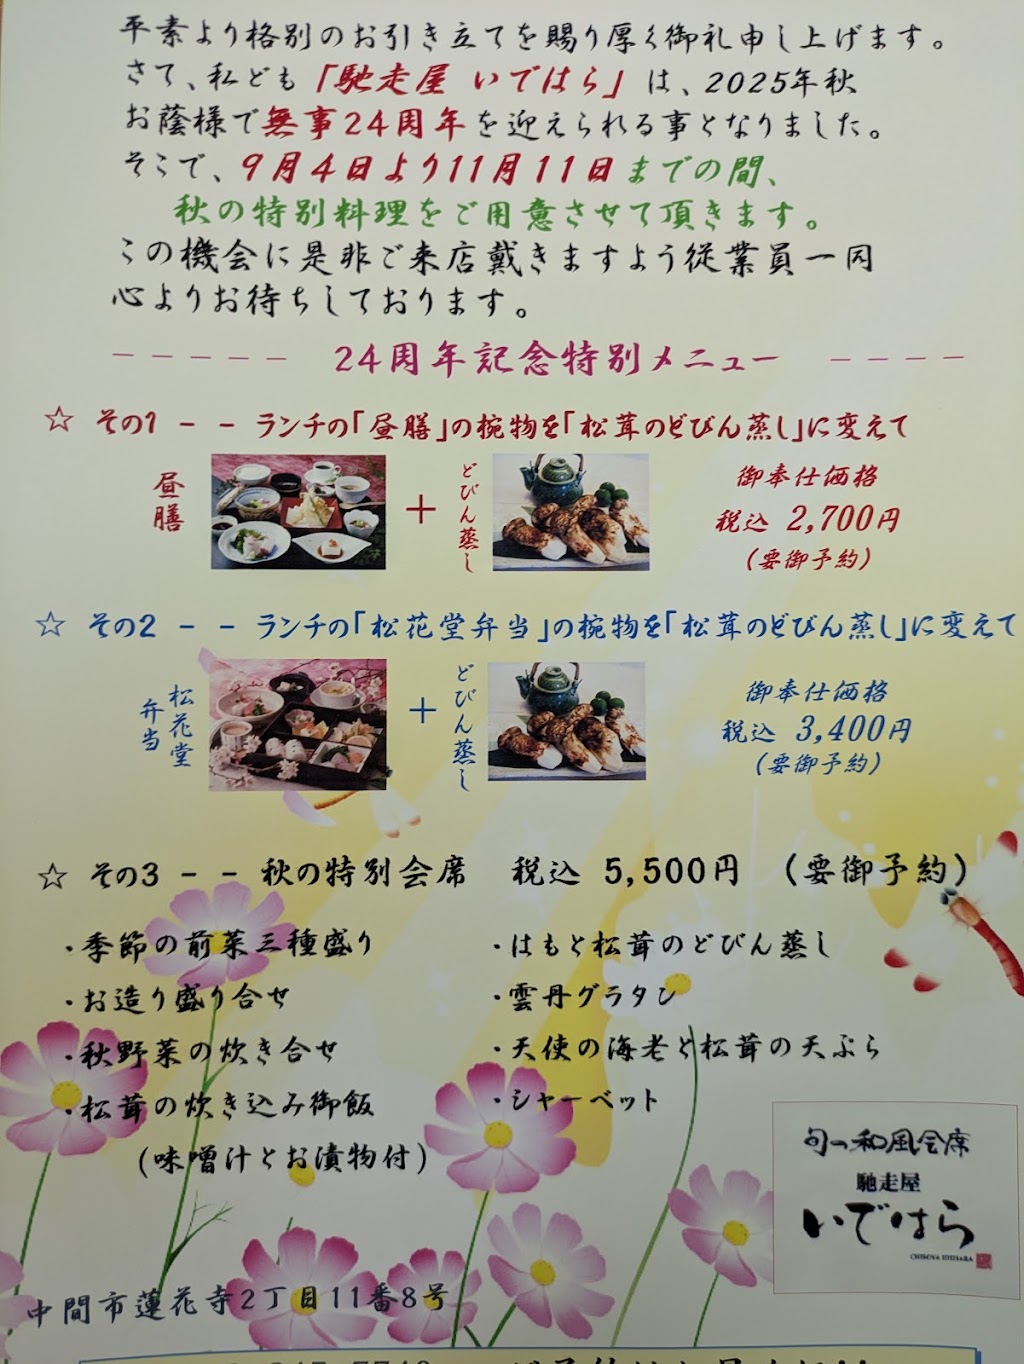 平素より格別のお引き立てを賜り厚く御礼申し上げます。
さて、私ども「馳走屋 いではら」は、2025年秋
お蔭様で無事24周年を迎えられる事となりました。
そこで、9月4日より11月11日までの間、
秋の特別料理をご用意させて頂きます。
この機会に是非ご来店戴きますよう従業員一同
心よりお待ちしております。
－－－－－ 24周年記念特別メニュー －－－－
☆ その1 －－ ランチの「昼膳」の椀物を「松茸のどびん蒸し」に変えて
昼膳
＋
どびん蒸し
御奉仕価格
税込 2,700円
(要御予約)
☆ その2 －－ ランチの「松花堂弁当」の椀物を「松茸のどびん蒸し」に変えて
松花堂
弁当
＋
どびん蒸し
御奉仕価格
税込 3,400円
(要御予約)
☆ その3 －－ 秋の特別会席 税込 5,500円 (要御予約)
・季節の前菜三種盛り
・お造り盛り合せ
・秋野菜の炊き合せ
・松茸の炊き込み御飯
(味噌汁とお漬物付)
・はもと松茸のどびん蒸し
・雲丹グラタン
・天使の海老と松茸の天ぷら
・シャーベット
旬の和風会席
馳走屋
いではら
CHISOYA IDEHARA
中間市蓮花寺2丁目11番8号